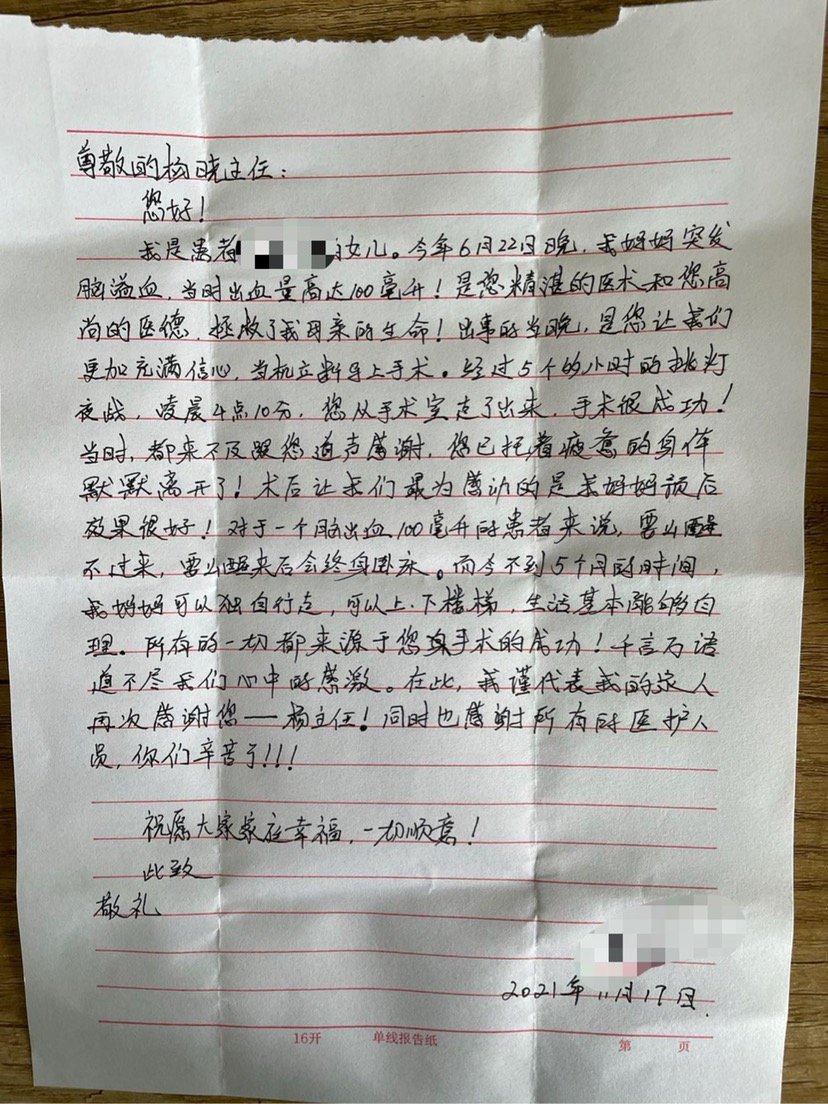 尊敬的杨晓主任：
您好！
我是患者 女儿。今年6月22日晚，我妈妈突发
脑溢血，当时出血量高达100毫升！是您精湛的医术和您高
尚的医德，拯救了我母亲的生命！出事的当晚，是您让我们
更加充满信心，当机立断马上手术。经过5个的小时的挑灯
夜战，凌晨4点10分，您从手术室走了出来，手术很成功！
当时，都来不及跟您道声感谢，您已拖着疲惫的身体
默默离开了！术后让我们最为感动的是我妈妈预后
效果很好！对于一个脑出血100毫升的患者来说，要么醒
不过来，要么醒来后会终身卧床。而今不到5个月的时间，
我妈妈可以独自行走，可以上、下楼梯，生活基本能够自
理。所有的一切都来源于您手术的成功！千言万语
道不尽我们心中的感激。在此，我谨代表我的家人
再次感谢您——杨主任！同时也感谢所有的医护人
员，你们辛苦了!!!
祝愿大家家庭幸福，一切顺意！
此致
敬礼
2021年11月17日.
16开 单线报告纸 第 页